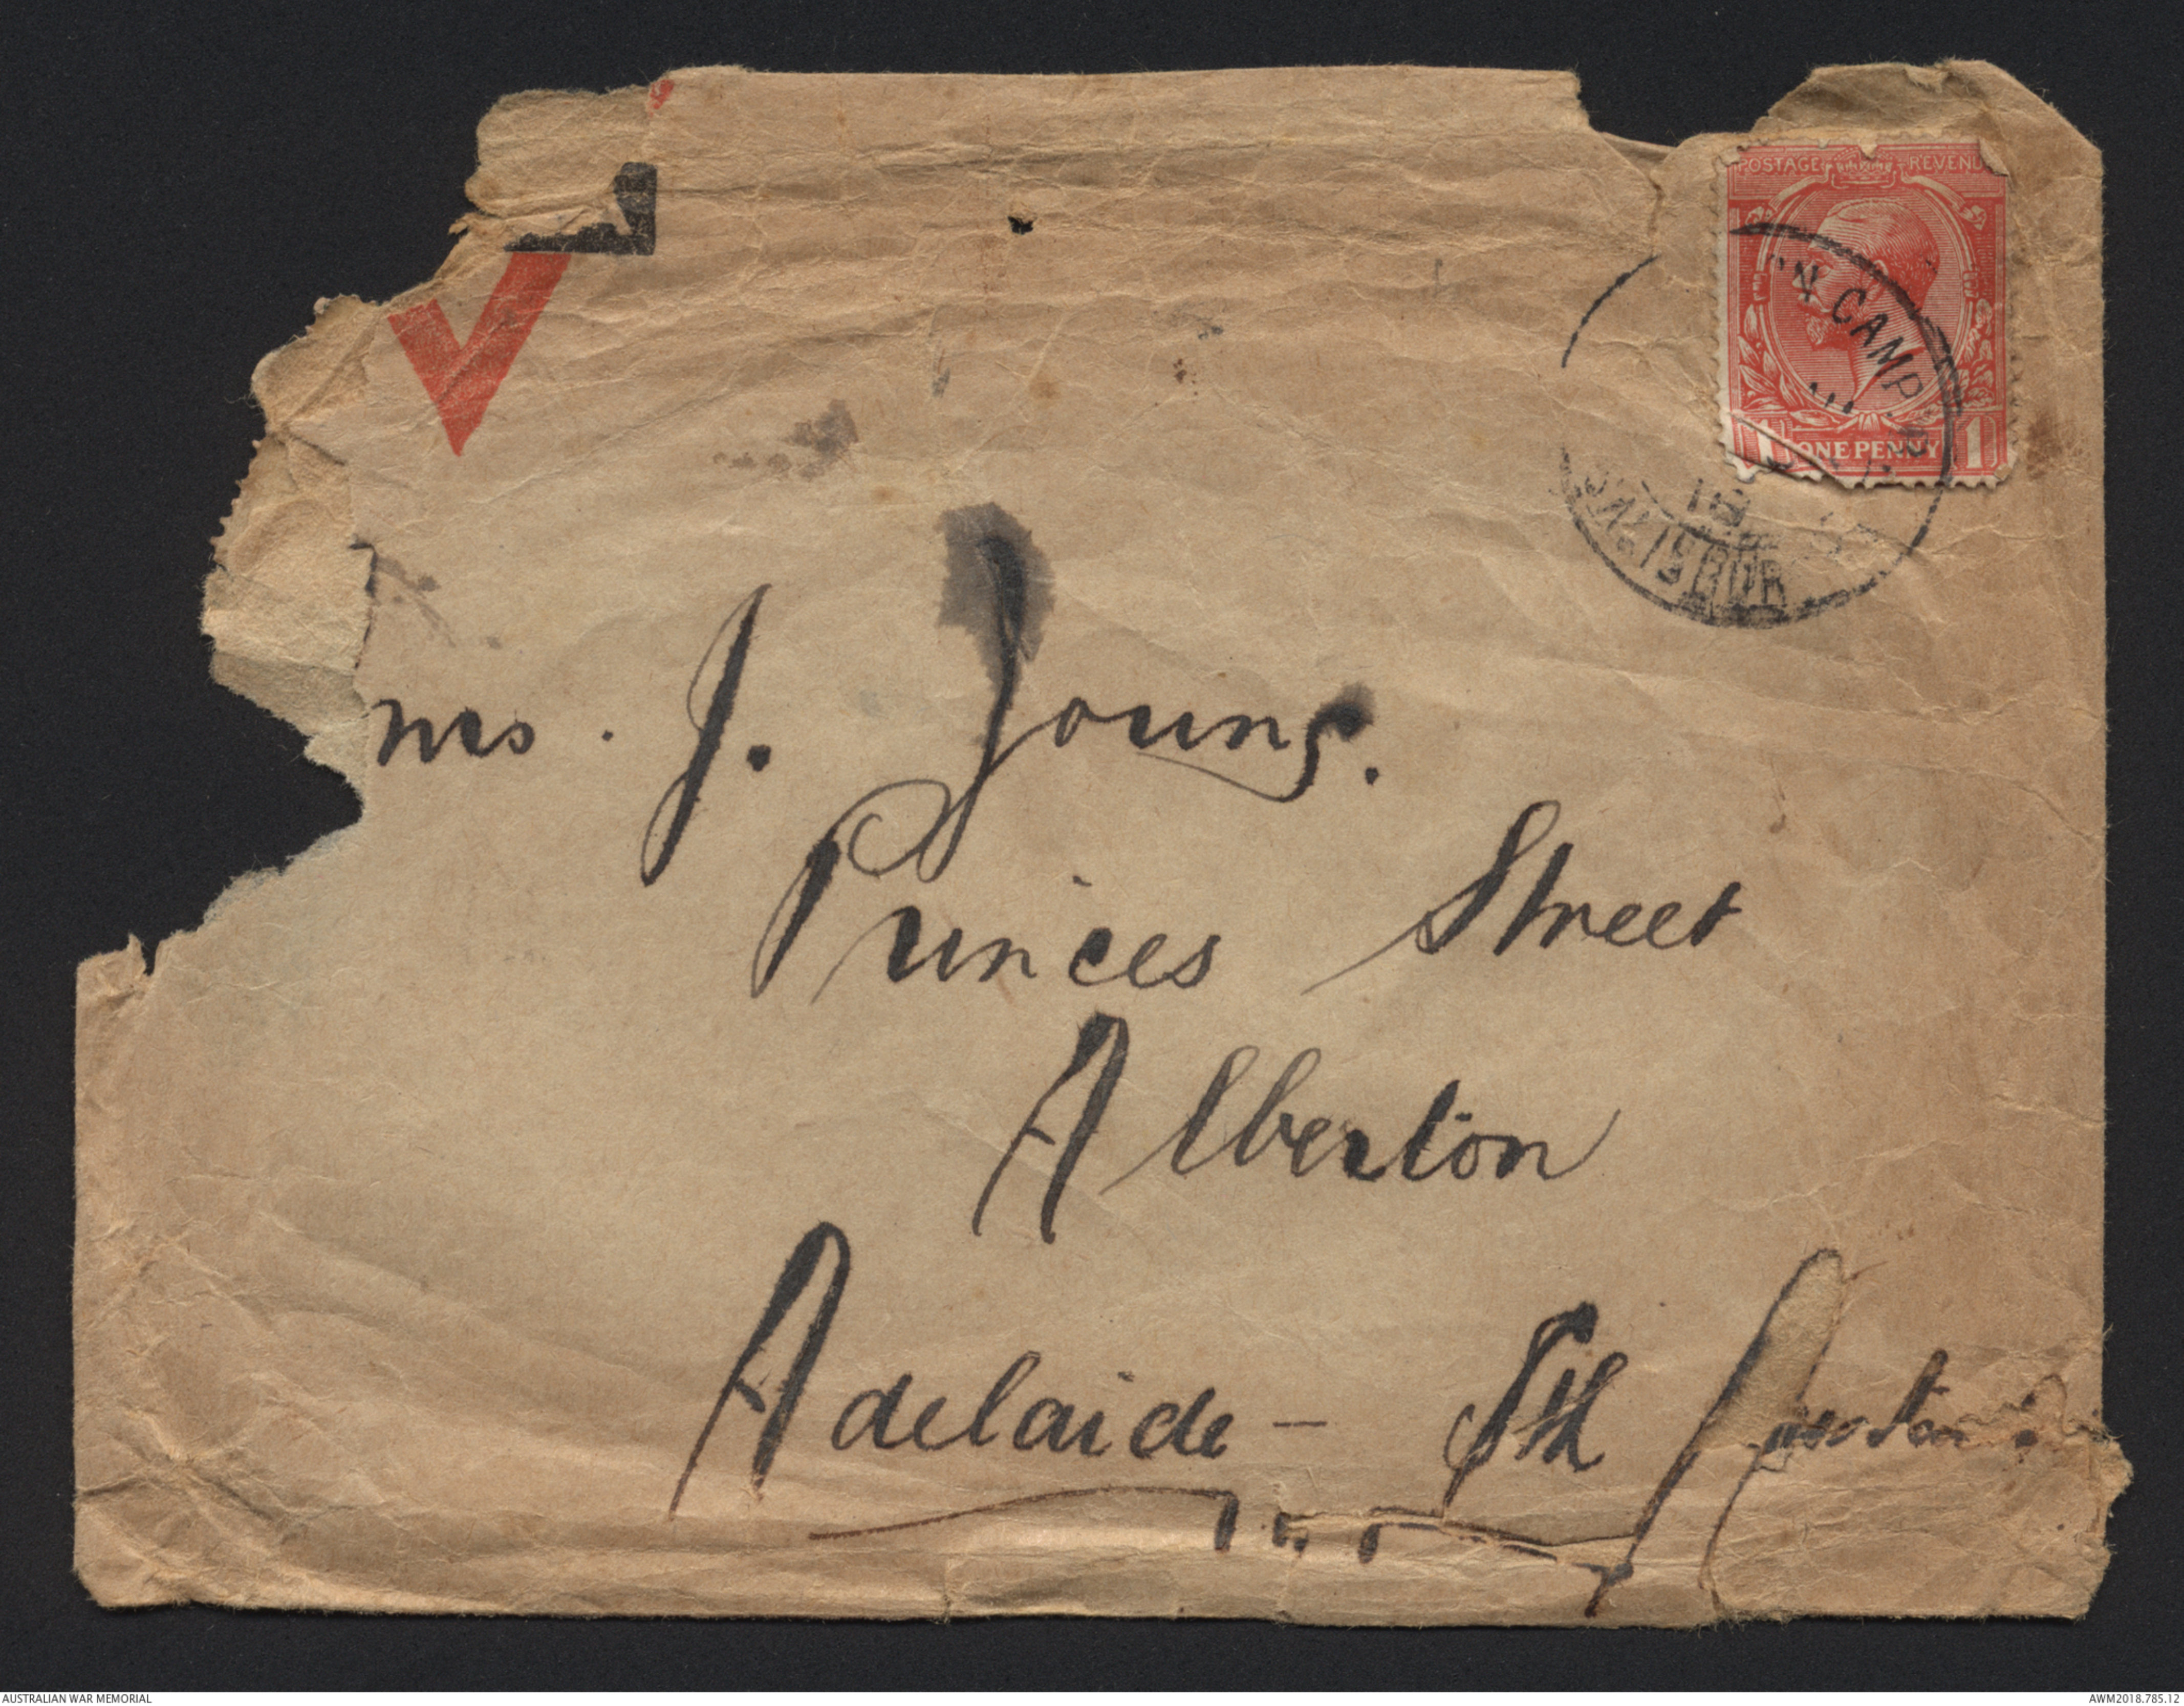 POSTAGE REVENU
ONE PENNY
1 1
N CAMP
18
Mrs. J. Young.
Princes Street
Alberton
Adelaide - Sth
AUSTRALIAN WAR MEMORIAL
AWM2018.785.12